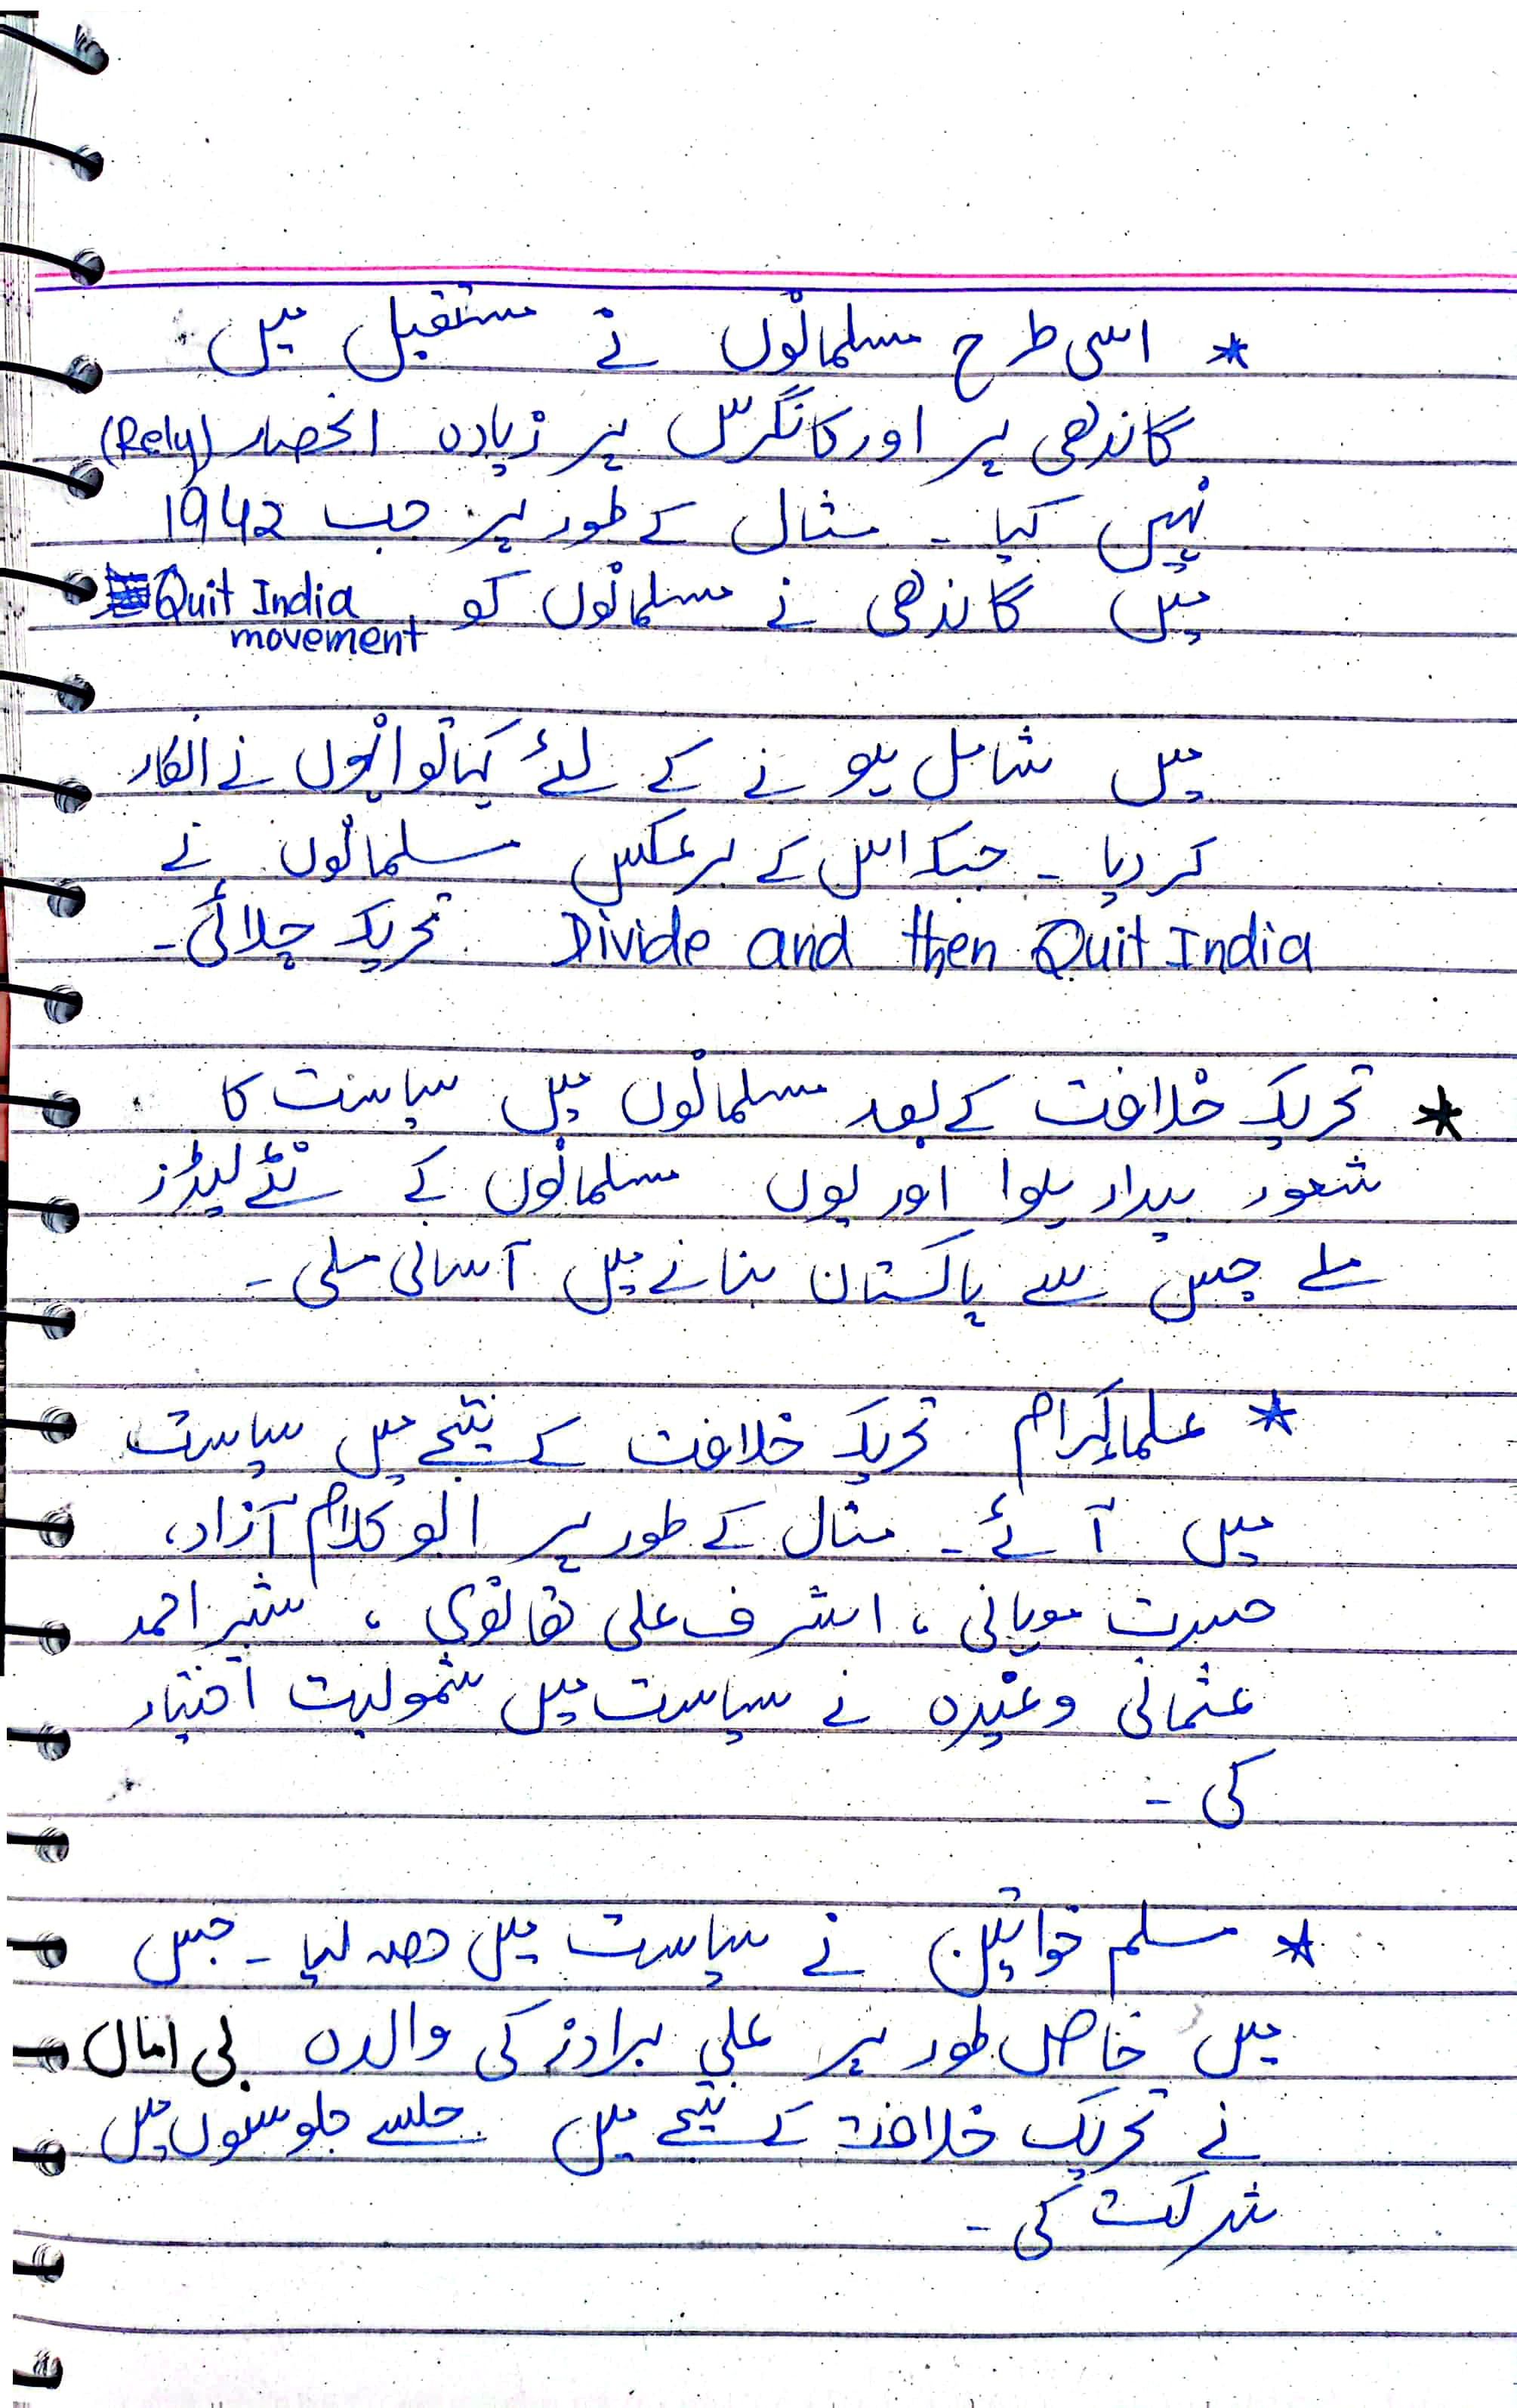 * اسی طرح مسلمانوں نے مستقبل میں
گاندھی پر اور کانگرس پر زیادہ انحصار (Rely)
نہیں کیا ۔ مثال کے طور پر جب 1942
میں گاندھی نے مسلمانوں کو Quit India
movement
میں شامل ہونے کے لئے کہا تو انہوں نے انکار
کر دیا ۔ جبکہ اس کے برعکس مسلمانوں نے
Divide and then Quit India تحریک چلائی ۔
* تحریک خلافت کے بعد مسلمانوں میں سیاست کا
شعور بیدار ہوا اور یوں مسلمانوں کے نئے لیڈرز
ملے جس سے پاکستان بنانے میں آسانی ملی ۔
* علماکرام تحریک خلافت کے نتیجے میں سیاست
میں آئے ۔ مثال کے طور پر ابو کلام آزاد،
حسرت موہانی ، اشرف علی تھانوی ، شبیر احمد
عثمانی وغیرہ نے سیاست میں شمولیت اختیار
کی ۔
* مسلم خواتین نے سیاست میں حصہ لیا ۔ جس
میں خاص طور پر علی برادرز کی والدہ بی اماں
نے تحریک خلافت کے نتیجے میں جلسے جلوسوں میں
شرکت کی ۔